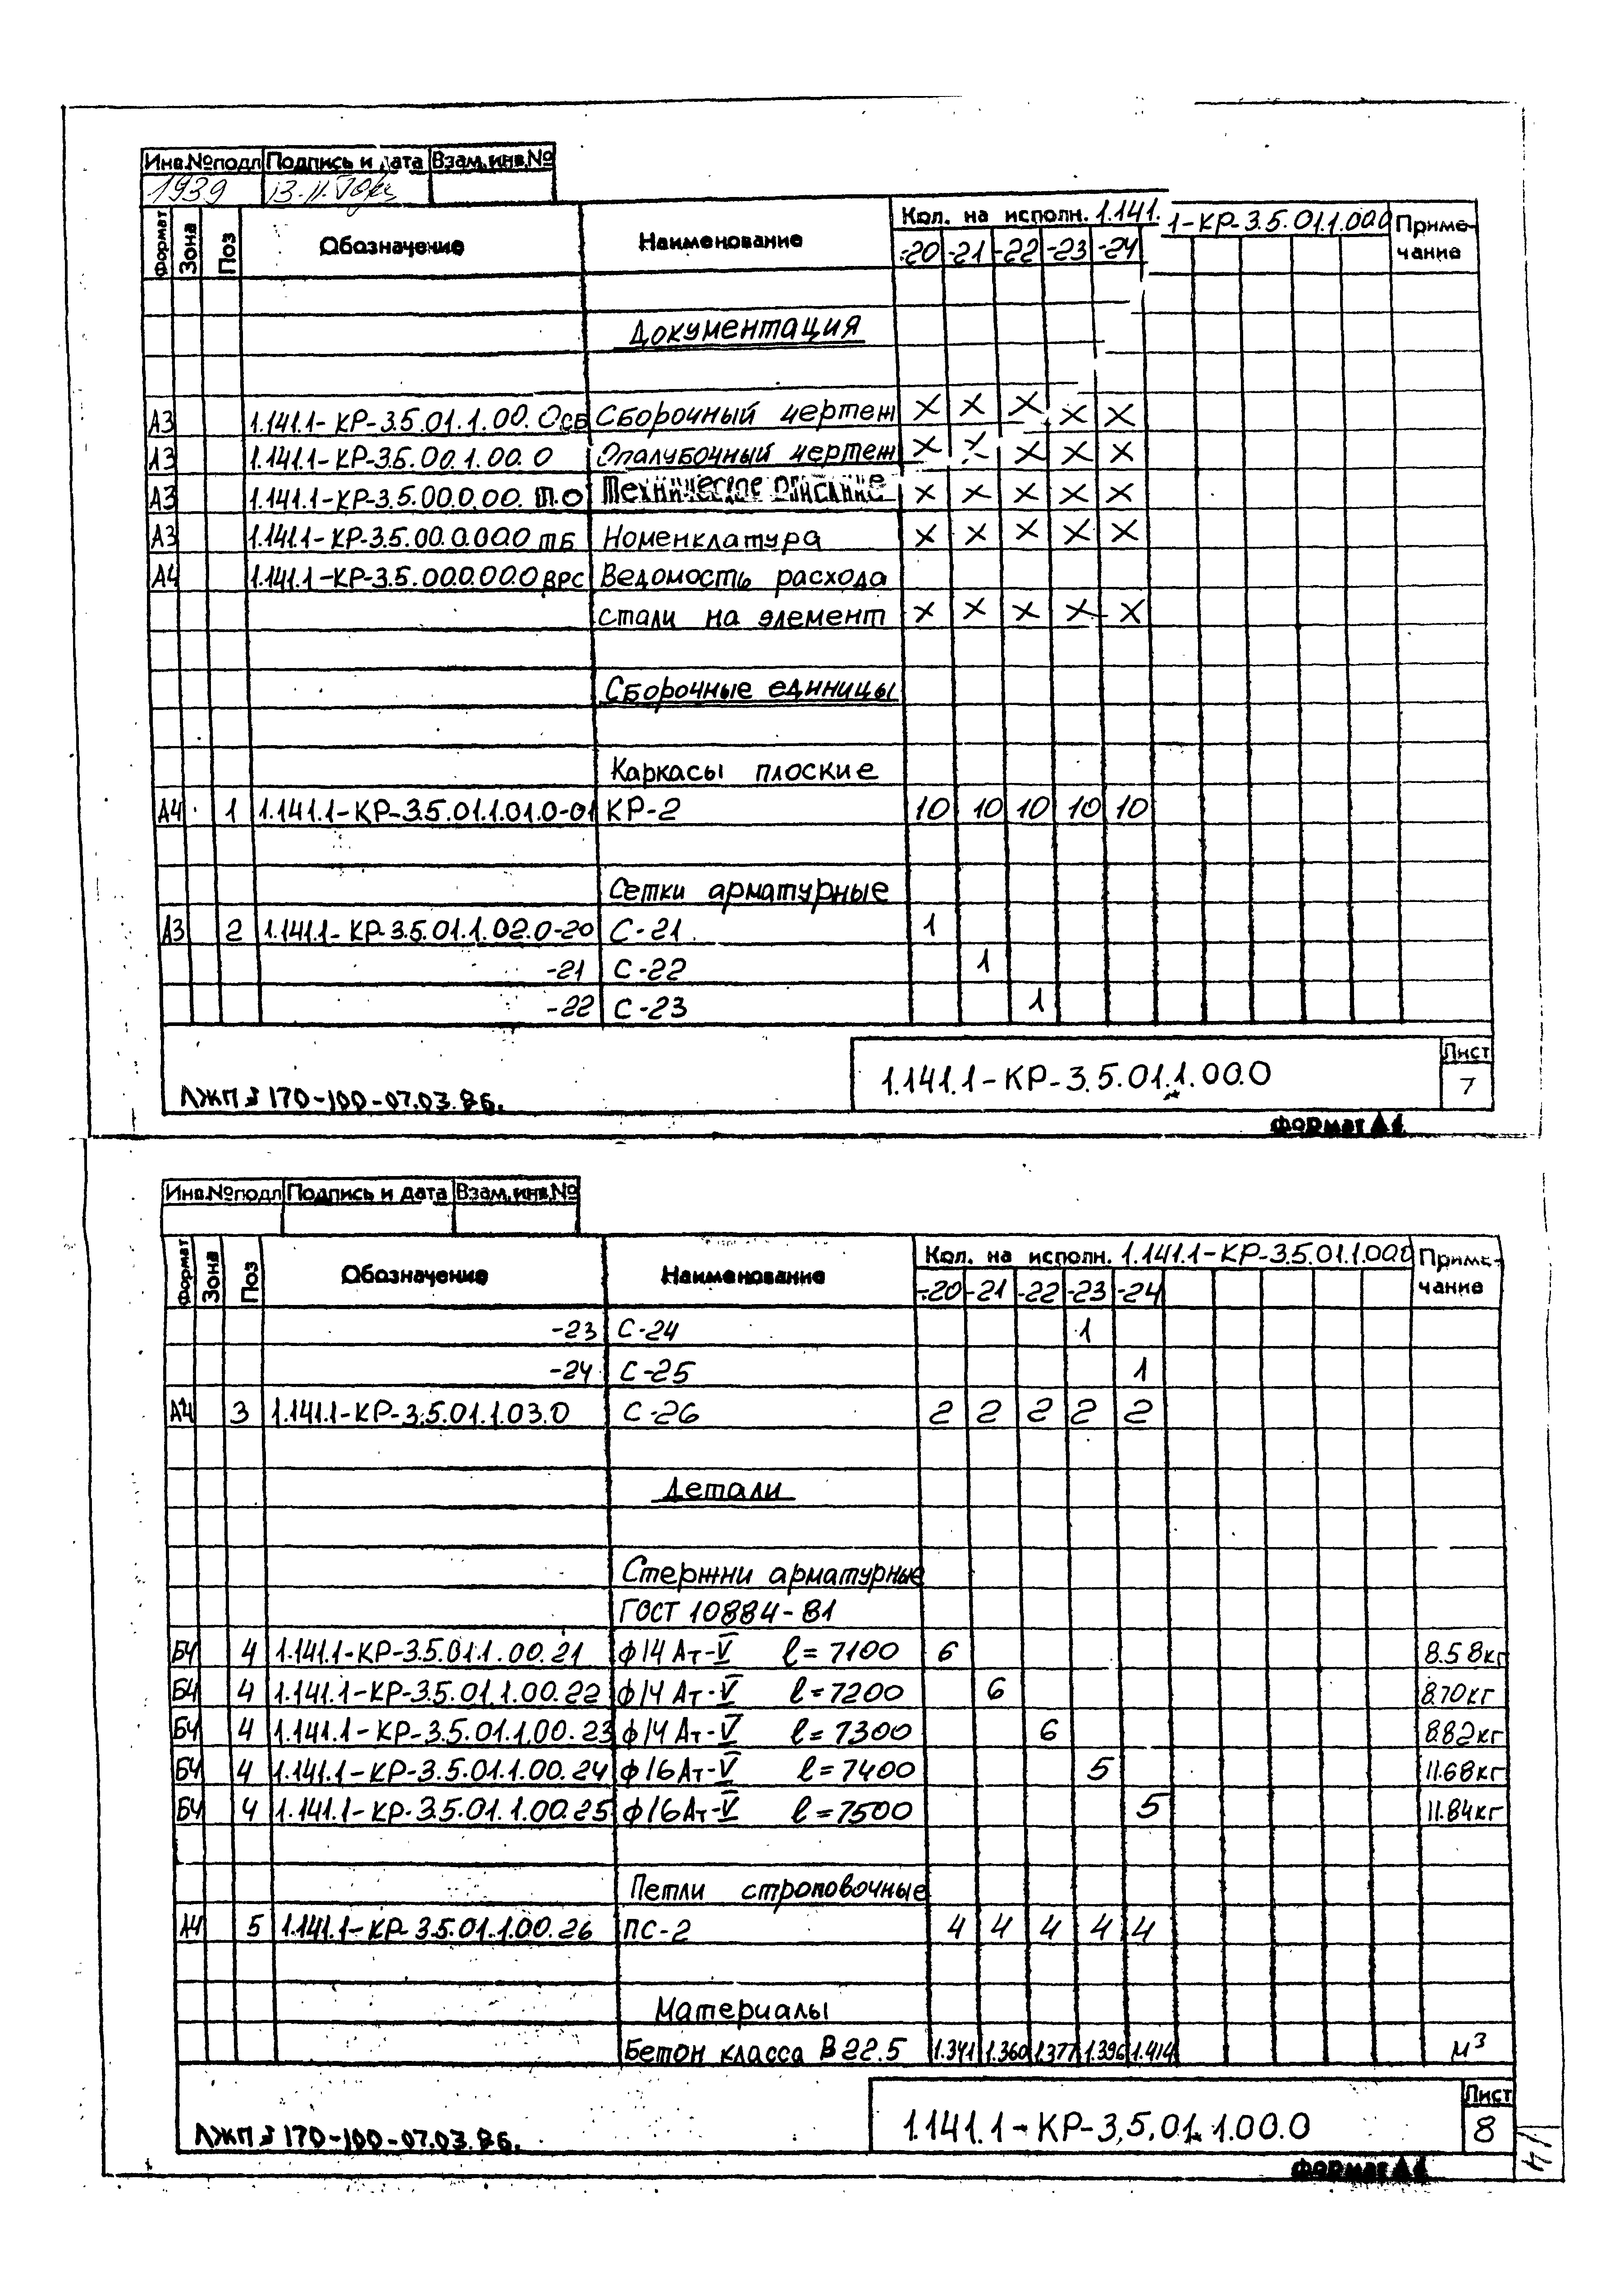 Инв.№подл Подпись и дата Взам.инв.№
1939
Формат Зона Поз Обозначение Наименование Кол. на исполн. 1.141.1-КР-3.5.01.1.00.0 Примечание
-20 -21 -22 -23 -24
Документация
А3 1.141.1-КР-3.5.01.1.00.0СБ Сборочный чертеж X X X X X
А3 1.141.1-КР-3.5.00.1.00.0 Опалубочный чертеж X X X X X
А3 1.141.1-КР-3.5.00.0.00.ТО Техническое описание X X X X X
А3 1.141.1-КР-3.5.00.0.00.0 ТБ Номенклатура X X X X X
А4 1.141.1-КР-3.5.00.0.00.0 ВРС Ведомость расхода
стали на элемент X X X X X
Сборочные единицы
Каркасы плоские
А4 1 1.141.1-КР-3.5.01.1.01.0-01 КР-2 10 10 10 10 10
Сетки арматурные
А3 2 1.141.1-КР-3.5.01.1.02.0-20 С-21 1
-21 С-22 1
-22 С-23 1
1.141.1-КР-3.5.01.1.00.0 Лист 7
170-100-07.03.86.
Формат А4
Инв.№подл Подпись и дата Взам.инв.№
Формат Зона Поз Обозначение Наименование Кол. на исполн. 1.141.1-КР-3.5.01.1.00.0 Примечание
-20 -21 -22 -23 -24
-23 С-24 1
-24 С-25 1
А4 3 1.141.1-КР-3.5.01.1.03.0 С-26 2 2 2 2 2
Детали
Стержни арматурные
ГОСТ 10884-81
БЧ 4 1.141.1-КР-3.5.01.1.00.21 ф14 Ат-V ℓ=7100 6 8.58кг
БЧ 4 1.141.1-КР-3.5.01.1.00.22 ф14 Ат-V ℓ=7200 6 8.70кг
БЧ 4 1.141.1-КР-3.5.01.1.00.23 ф14 Ат-V ℓ=7300 6 8.82кг
БЧ 4 1.141.1-КР-3.5.01.1.00.24 ф16 Ат-V ℓ=7400 5 11.68кг
БЧ 4 1.141.1-КР-3.5.01.1.00.25 ф16 Ат-V ℓ=7500 5 11.84кг
Петли строповочные
А4 5 1.141.1-КР-3.5.01.1.00.26 ПС-2 4 4 4 4 4
Материалы
Бетон класса В22.5 1.341 1.360 1.377 1.396 1.414 м³
1.141.1-КР-3.5.01.1.00.0 Лист 8
170-100-07.03.86.
Формат А4